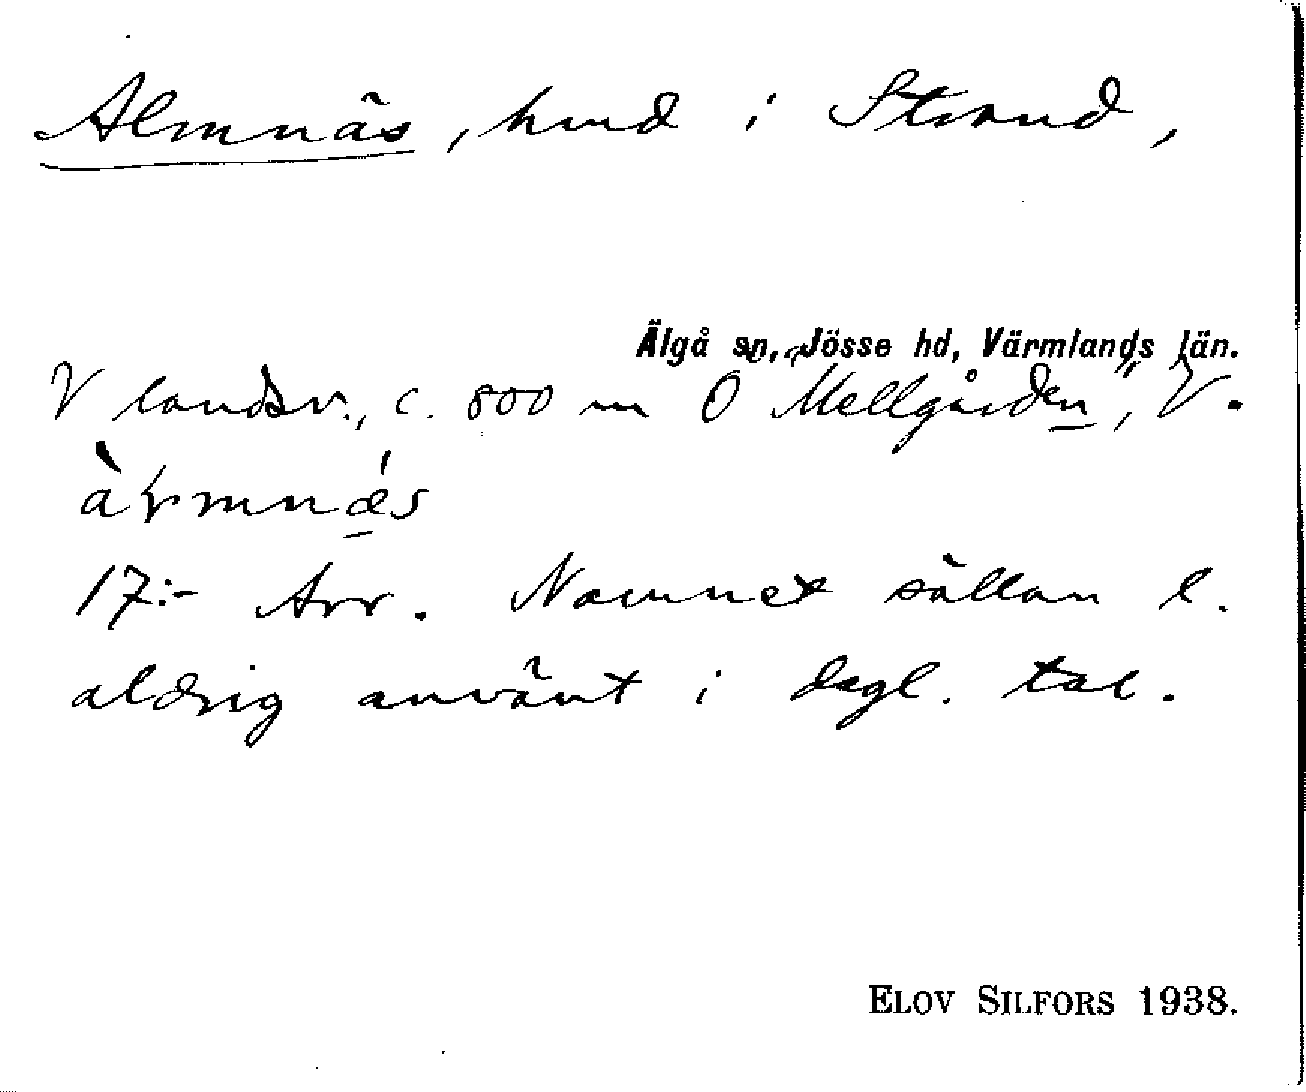 Almnäs, hmd i Strand,
Älgå sn, Jösse hd, Värmlands län.
V landsv., c. 800 m Ö Mellgården, V.
17:- Arr. Namnet sällan l.
aldrig använt i dagl. tal.
ELOV SILFORS 1938.